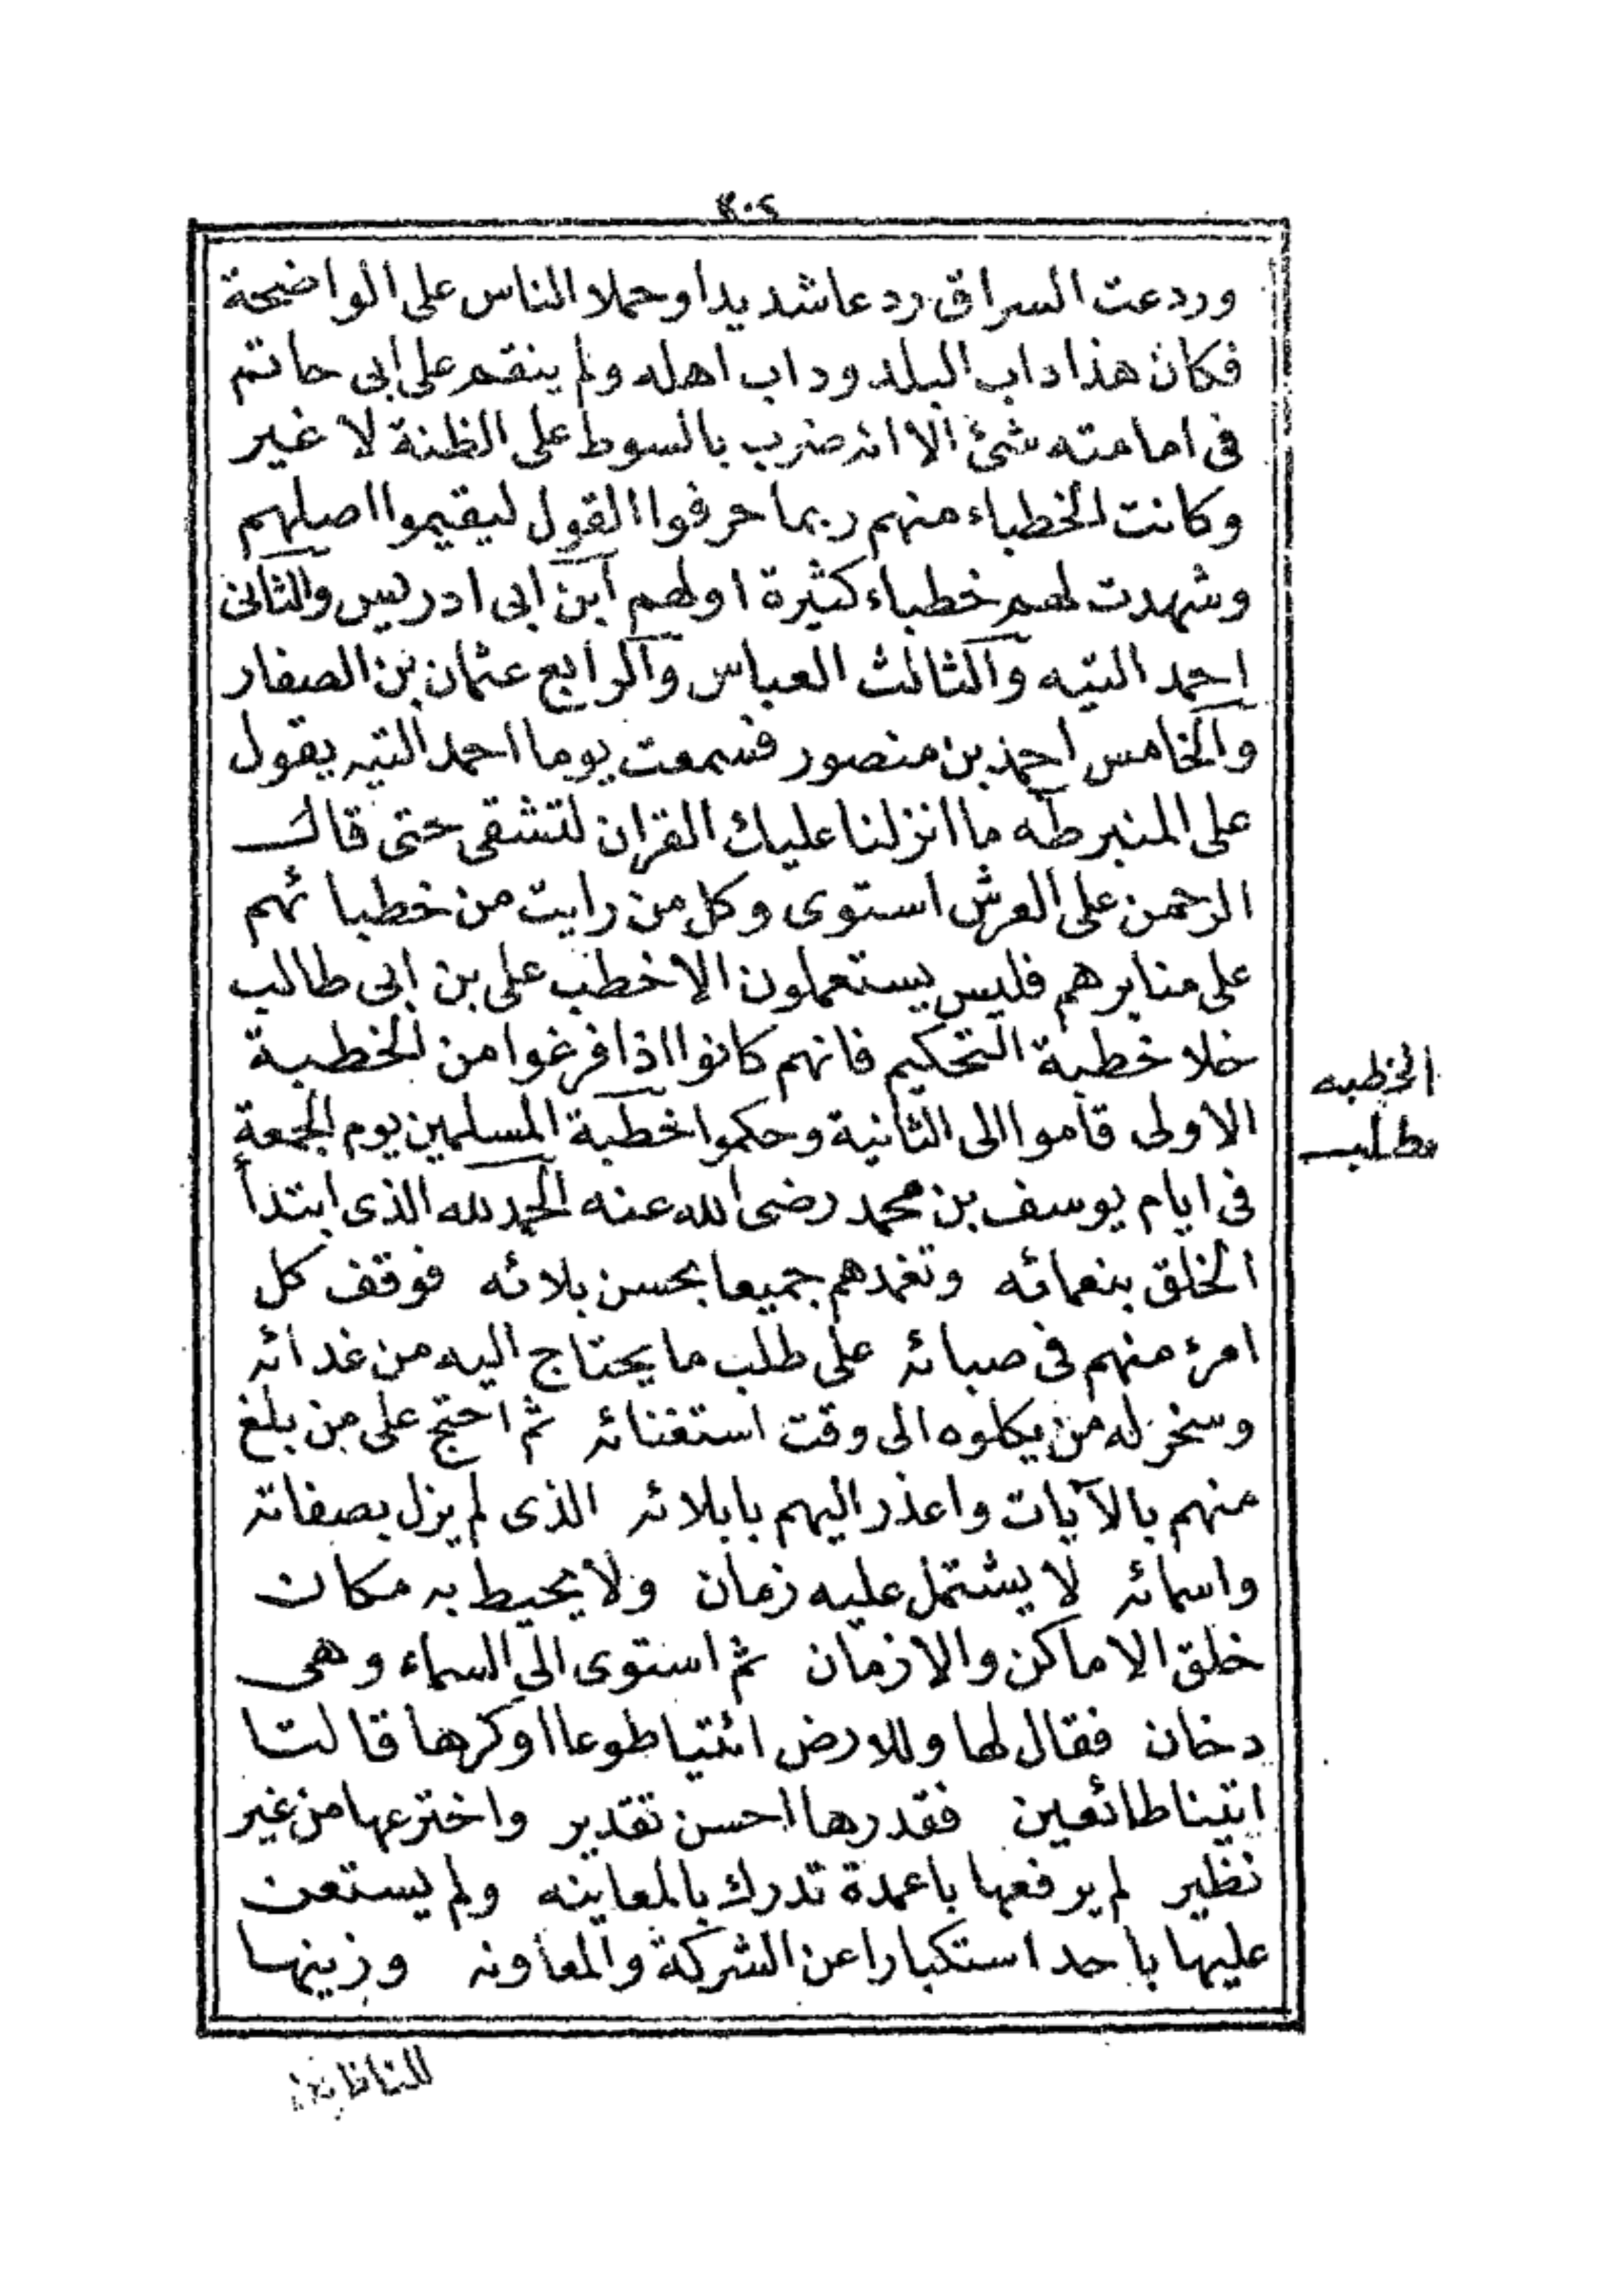 وردعت السراق ردعا شديدا وحملا الناس على الواضحة
فكان هذا داب البلد وداب اهله ولم ينقم على ابى حاتم
فى امامته شئ الا انه ضرب بالسوط على الظنة لا غير
وكانت الخطباء منهم ربما حرفوا القول ليقيموا اصلهم
وشهدت لهم خطباء كثيرة اولهم ابن ابى ادريس والثانى
احمد التيه والثالث العباس والرابع عثمان بن الصفار
والخامس احمد بن منصور فسمعت يوما احمد التيه يقول
على المنبر طه ما انزلنا عليك القران لتشقى حتى قال
الرحمن على العرش استوى وكل من رايت من خطبائهم
على منابرهم فليس يستعملون الا خطب على بن ابى طالب
خلا خطبة التحكيم فانهم كانوا اذا فرغوا من الخطبة
الخطبه
الاولى قاموا الى الثانية وحكموا خطبة المسلمين يوم الجمعة
مطلب
فى ايام يوسف بن محمد رضى الله عنه الحمد لله الذى ابتدأ
الخلق بنعمائه وتغمدهم جميعا بحسن بلائه فوقف كل
امرئ منهم فى صبائه على طلب ما يحتاج اليه من غدائه
وسخر له من يكلوه الى وقت استغنائه ثم احتج على من بلغ
منهم بالآيات واعذر اليهم بابلائه الذى لم يزل بصفاته
واسمائه لا يشتمل عليه زمان ولا يحيط به مكان
خلق الاماكن والازمان ثم استوى الى السماء وهى
دخان فقال لها وللارض ائتيا طوعا او كرها قالتا
اتينا طائعين فقدرها احسن تقدير واخترعها من غير
نظير لم يرفعها باعمدة تدرك بالمعاينه ولم يستعن
عليها باحد استكبارا عن الشركة والمعاونه وزينها
للناظرين